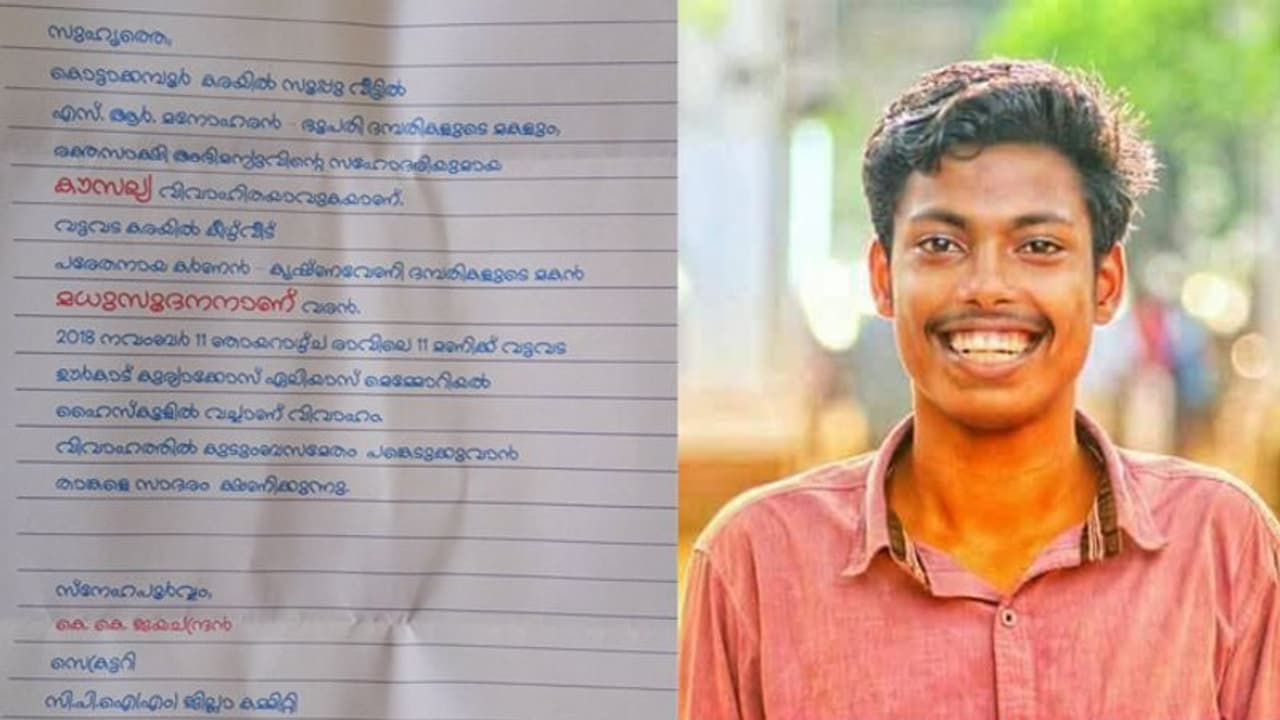 സുഹൃത്തെ,
കൊട്ടാക്കമ്പൂർ കരയിൽ സൂപ്പു വീട്ടിൽ
എസ്. ആർ. മനോഹരൻ - ഭൂപതി ദമ്പതികളുടെ മകളും,
രക്തസാക്ഷി അഭിമന്യുവിന്റെ സഹോദരിയുമായ
കൗസല്യ വിവാഹിതയാവുകയാണ്.
വട്ടവട കരയിൽ കീഴ്‌വീട്
പരേതനായ കർണൻ - കൃഷ്ണവേണി ദമ്പതികളുടെ മകൻ
മധുസൂദനനാണ് വരൻ.
2018 നവംബർ 11 ഞായറാഴ്ച രാവിലെ 11 മണിക്ക് വട്ടവട
ഊർകാട് കുര്യാക്കോസ് ഏലിയാസ് മെമ്മോറിയൽ
ഹൈസ്കൂളിൽ വച്ചാണ് വിവാഹം.
വിവാഹത്തിൽ കുടുംബസമേതം പങ്കെടുക്കുവാൻ
താങ്കളെ സാദരം ക്ഷണിക്കുന്നു.
സ്നേഹപൂർവ്വം,
കെ. കെ. ജയചന്ദ്രൻ
സെക്രട്ടറി
സി.പി.ഐ(എം) ജില്ലാ കമ്മിറ്റി